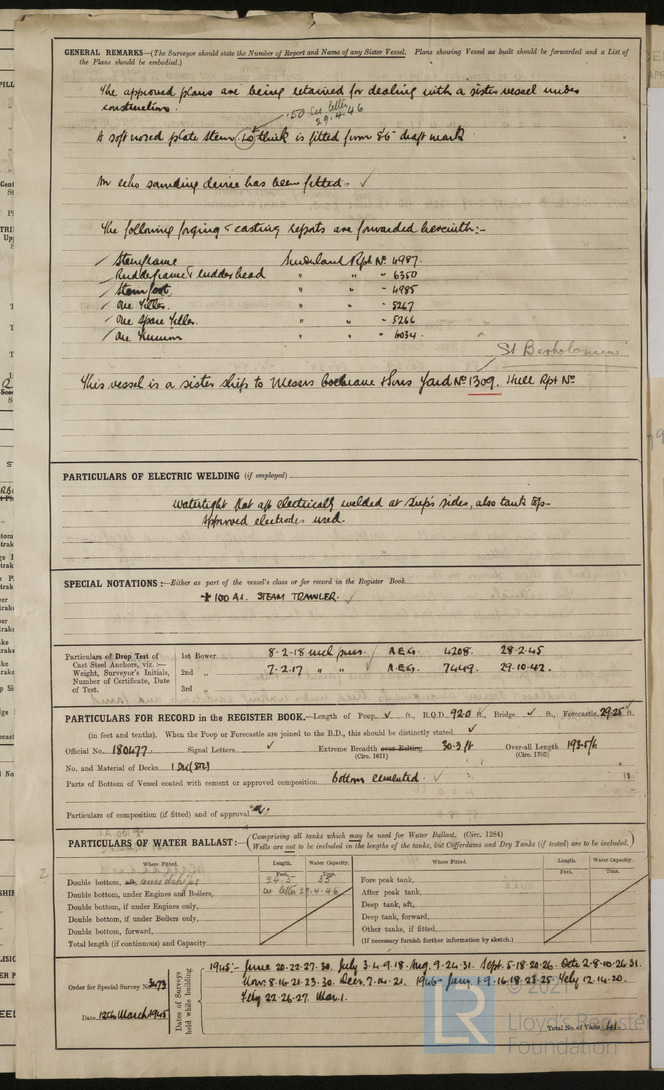 GENERAL REMARKS—(The Surveyor should state the Number of Report and Name of any Sister Vessel. Plans showing Vessel as built should be forwarded and a List of
the Plans should be embodied.)
The approved plans are being retained for dealing with a sister vessel under
construction.
.50 See letter
29.4.46
A soft nosed plate stem thick is fitted from 8'6" draft mark
An echo sounding device has been fitted. ✓
The following forging & casting reports are forwarded herewith:-
Sternframe Sunderland Rpt No 4987.
Rudderframe & rudderhead " " - 6350
Stemfoot " " - 4985
One Tiller. " " - 5267
One Spare Tiller. " " - 5266
One " " - 6034
St Bartholomew
This vessel is a sister ship to Messrs Cochrane & Sons Yard No 1309. Hull Rpt No
PARTICULARS OF ELECTRIC WELDING (if employed)
Watertight flat aft electrically welded at ship's sides, also tank top-
Approved electrodes used.
SPECIAL NOTATIONS:—Either as part of the vessel's class or for record in the Register Book
+ 100 A1. STEAM TRAWLER. ✓
Particulars of Drop Test of
Cast Steel Anchors, viz. :—
Weight, Surveyor's Initials,
Number of Certificate, Date
of Test.
1st Bower 8-2-18 incl pins. ✓ A.E.G. 4208. 28-2-45
2nd " 7-2-17 " " A.E.G. 7449. 29-10-42.
3rd "
PARTICULARS FOR RECORD in the REGISTER BOOK.—Length of Poop ✓ ft., R.Q.D. 92.0 ft., Bridge ✓ ft., Forecastle 29.25 ft.
(in feet and tenths). When the Poop or Forecastle are joined to the B.D., this should be distinctly stated ✓
Official No. 180477. Signal Letters ✓ Extreme Breadth over Belting 30.3 ft Over-all Length 193.5 ft
(Circ. 1611) (Circ. 1703)
No. and Material of Decks 1 Dk (Stl)
Parts of Bottom of Vessel coated with cement or approved composition Bottom cemented ✓
Particulars of composition (if fitted) and of approval
PARTICULARS OF WATER BALLAST:—(Comprising all tanks which may be used for Water Ballast. (Circ. 1284)
Wells are not to be included in the lengths of the tanks, but Cofferdams and Dry Tanks (if tested) are to be included.)
Where Fitted. Length. Water Capacity. Where Fitted. Length. Water Capacity.
Feet. Tons. Feet. Tons.
Double bottom, aft, amidships 24.5 35 Fore peak tank,
Double bottom, under Engines and Boilers, See letter 29.4.46 After peak tank,
Double bottom, if under Engines only, Deep tank, aft,
Double bottom, if under Boilers only, Deep tank, forward,
Double bottom, forward, Other tanks, if fitted,
Total length (if continuous) and Capacity (If necessary furnish further information by sketch.)
Order for Special Survey No. 3473
Date 12th March 1945
Dates of Surveys held while building
1945:- June 20-22-27-30. July 3-4-9-18. Aug. 9-24-31. Sept. 5-18-20-26. Octr 2-8-10-26-31.
Nov. 8-16-21-23-30. Decr. 7-14-21. 1946- Jany. 1-9-16-18-23-25. Feby 12-14-20.
Feby 22-26-27. Mar. 1.
Total No. of Visits 41.
© 2021
LR
Lloyd's Register
Foundation